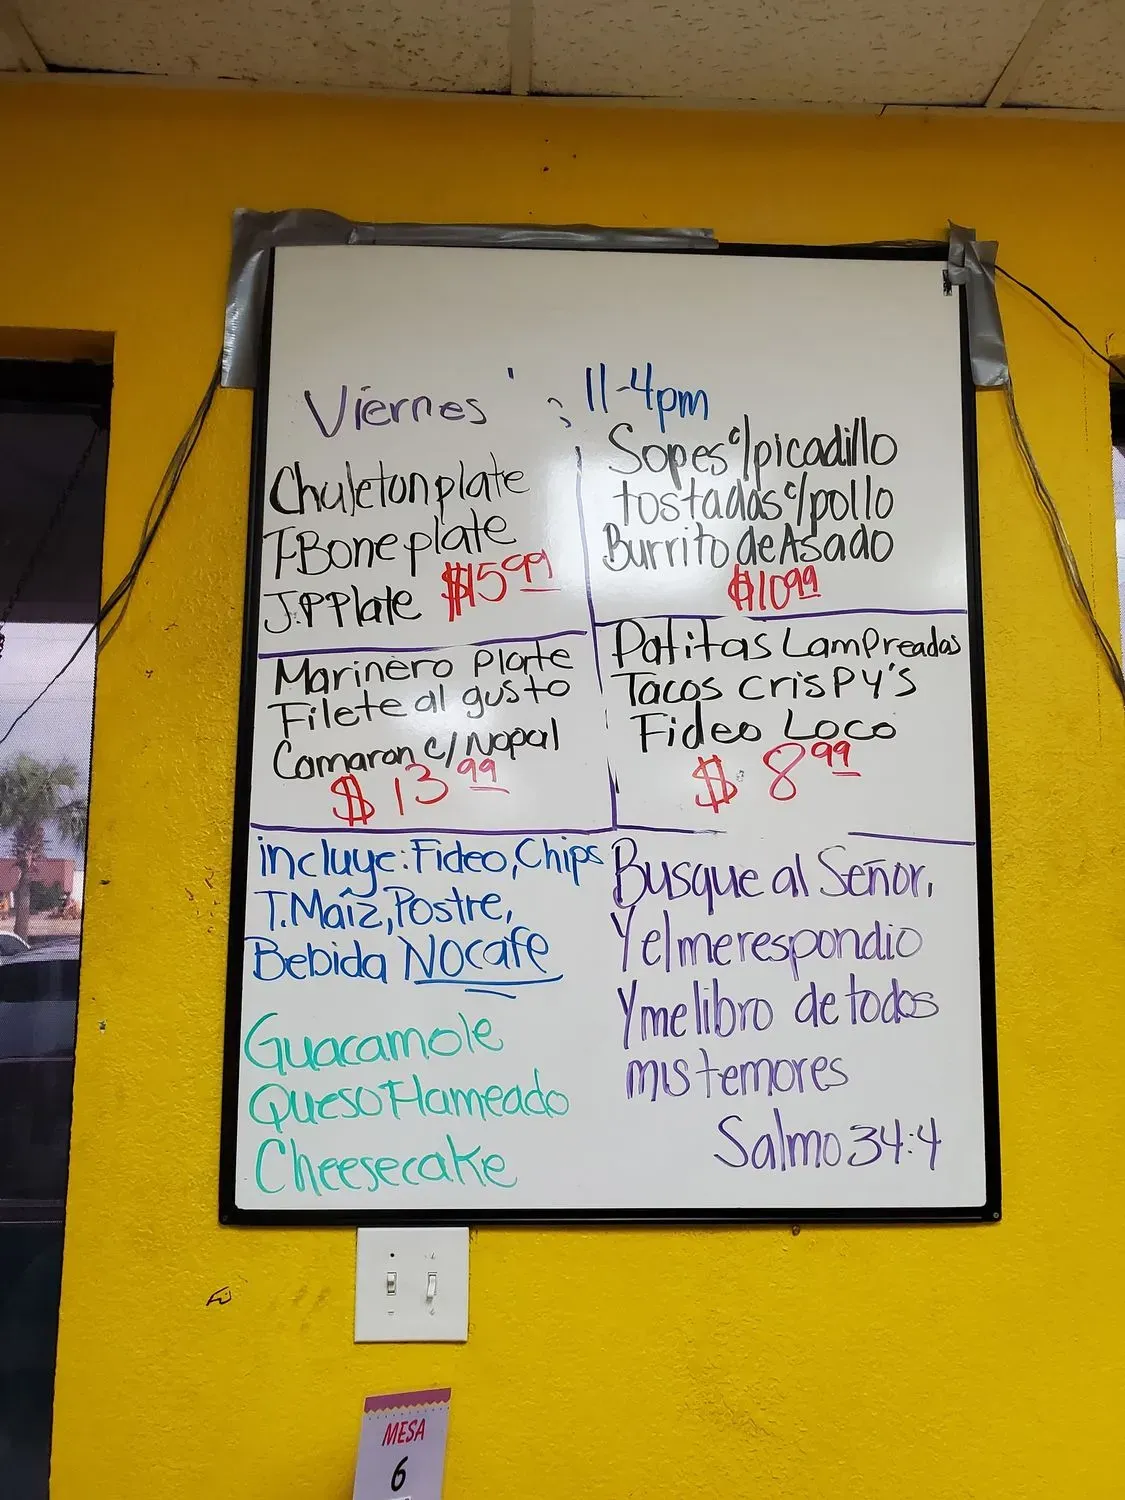 Viernes : 11-4pm
Chuleton plate
T-Bone plate
J.P Plate $15.99
Sopes c/picadillo
tostadas c/pollo
Burrito de Asado
$10.99
Marinero Plate
Filete al gusto
Camaron c/ Nopal
$13.99
Patitas Lampreadas
Tacos crispy's
Fideo Loco
$8.99
incluye: Fideo, Chips
T. Maíz, Postre,
Bebida NO cafe
Guacamole
Queso Flameado
Cheesecake
Busque al Señor,
Y el me respondio
Y me libro de todos
mis temores
Salmo 34:4
MESA
6